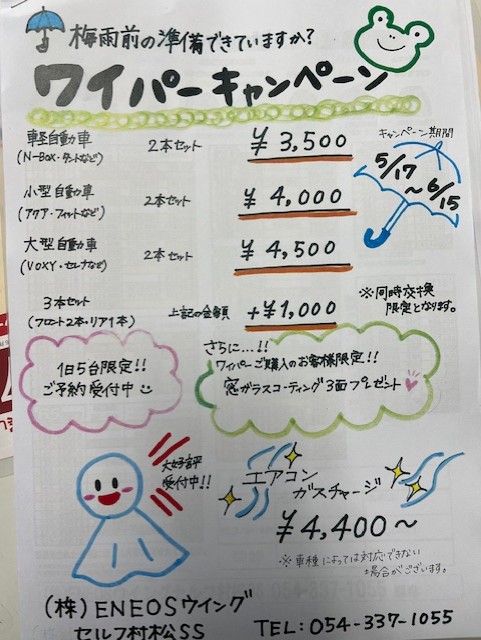 梅雨前の準備できていますか?
ワイパーキャンペーン
キャンペーン期間
5/17
~6/15
軽自動車 2本セット ¥3,500
(N-Box・タントなど)
小型自動車 2本セット ¥4,000
(アクア・フィットなど)
大型自動車 2本セット ¥4,500
(VOXY・セレナなど)
3本セット 上記の金額 +¥1,000
(フロント2本・リア1本)
※同時交換
限定となります。
1日5台限定!!
ご予約受付中
さらに...!!
ワイパーご購入のお客様限定!!
窓ガラスコーティング3面プレゼント
大好評
受付中!!
エアコン
ガスチャージ
¥4,400~
※車種によっては対応できない
場合がございます。
(株)ENEOSウイング
セルフ村松SS TEL:054-337-1055